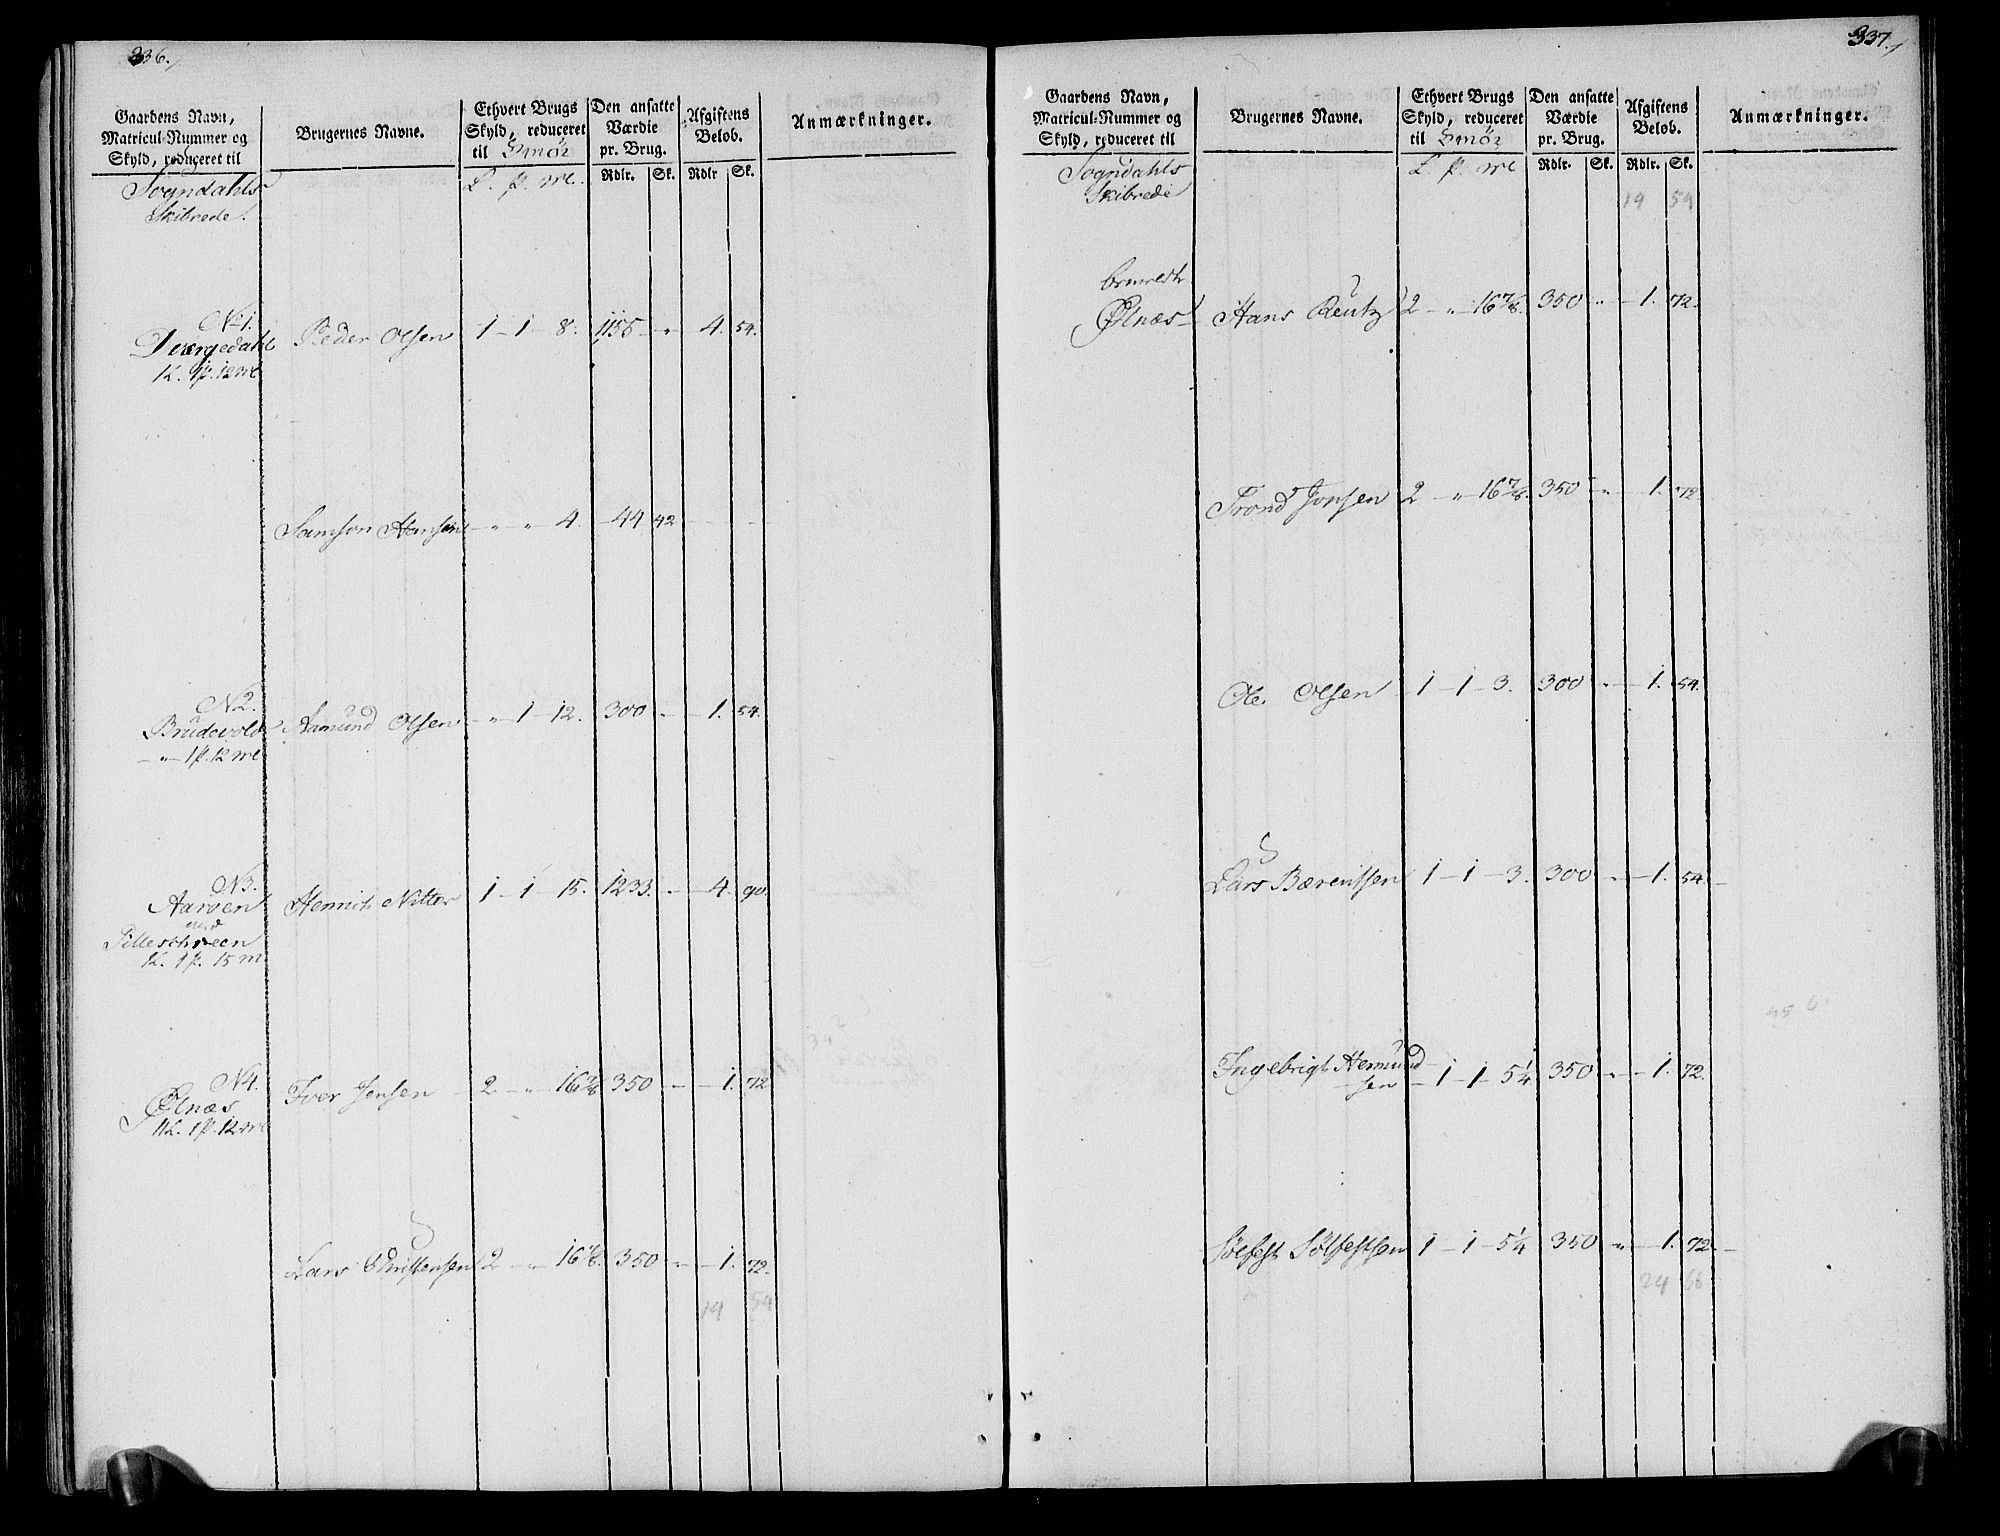 336.
Gaardens Navn,
Matricul-Nummer og
Skyld, reduceret til
Brugernes Navne.
Ethvert Brugs
Skyld, reduceret
til Smør
Den ansatte
Værdie
pr. Brug.
Afgiftens
Beløb.
Anmærkninger.
L. p. mk.
Rdlr. Sk. Rdlr Sk.
Sogndahls
Skibrede.
No 1.
Dværgedahl
1L. 1p. 12 mk
Peder Olsen 1 - 1 - 8. 1155 - " - 4. 54.
Samson Hansen - " - " 4. - 44 42 - - -
N2.
Brudevold
- " - 1p. 12 mk
Aamund Olsen - " - 1 - 12. 300 - " - 1. 54.
N3.
Aarøen
med
Pilleschreen
1L. 1p. 15 m
Henrich Nitter 1 - 1 - 15. 1233. - " - 4. 90.
N4.
Ølnæs
11L. 1p. 12 mk
Iver Jensen 2 - " - 16 7/8 350 - " - 1. 72
Lars Christensen 2 - " - 16 7/8. 350 - " - 1. 72.
19 54
337.
Gaardens Navn,
Matricul-Nummer og
Skyld, reduceret til
Brugernes Navne.
Ethvert Brugs
Skyld, reduceret
til Smør
Den ansatte
Værdie
pr. Brug.
Afgiftens
Beløb.
Anmærkninger.
L p. mk
Rdlr. Sk. Rdlr. Sk.
Sogndahls
Skibrede
19 54
Ølnæs
Hans Reutz 2 - " - 16 7/8. 350 - " - 1. 72.
Trond Jonsen 2 - " - 16 7/8. 350 - " - 1. 72
Ole Olsen 1 - 1 - 3. 300 - " - 1. 54.
Lars Bærentsen 1 - 1 - 3. 300 - " - 1. 54.
Ingebrigt Hermund-
sen - 1 - 1 - 5 1/4 350 - " - 1. 72.
Sølfest Sølfestsen 1 - 1 - 5 1/4 350 - " - 1. 72.
24 66